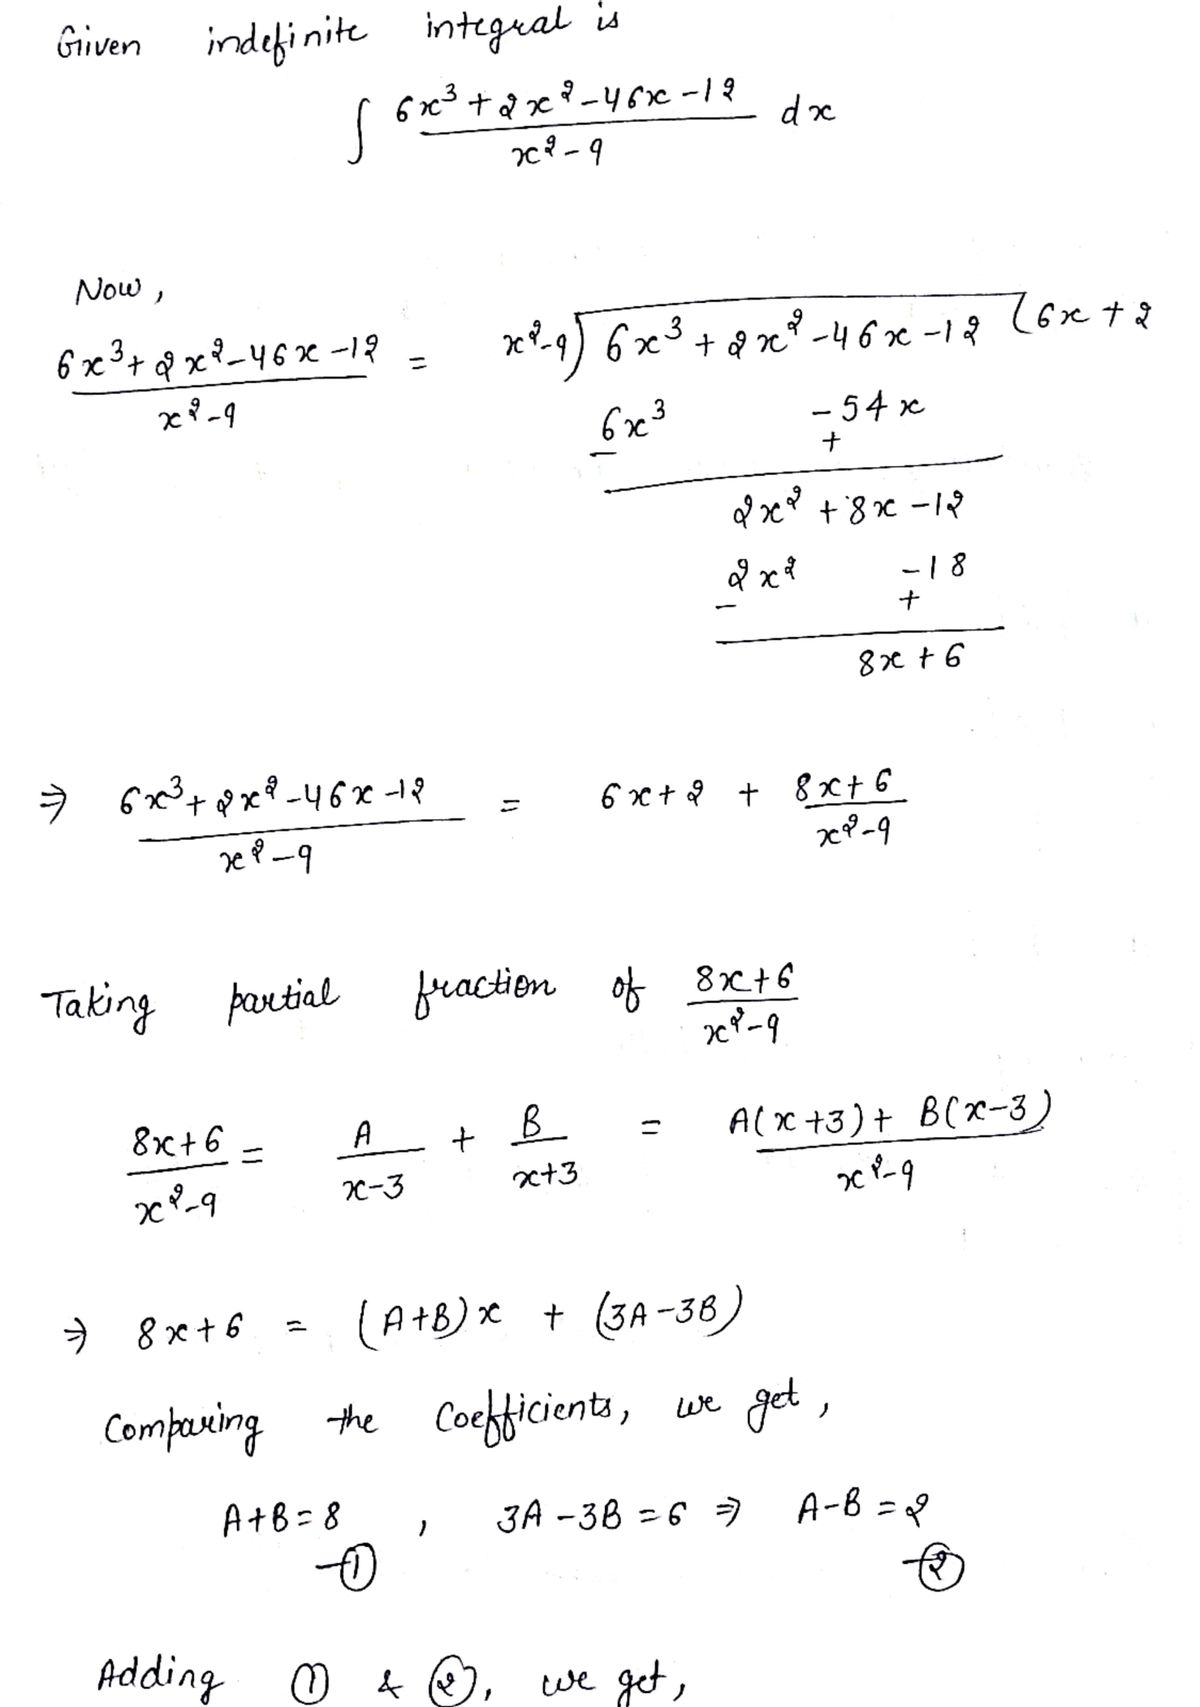 Given indefinite integral is
∫ (6x³ + 2x² - 46x - 12)/(x² - 9) dx
Now,
(6x³ + 2x² - 46x - 12)/(x² - 9) = x²-9) 6x³ + 2x² - 46x - 12 (6x + 2
6x³ - 54x
- +
2x² + 8x - 12
2x² - 18
- +
8x + 6
⇒ (6x³ + 2x² - 46x - 12)/(x² - 9) = 6x + 2 + (8x + 6)/(x² - 9)
Taking partial fraction of (8x + 6)/(x² - 9)
(8x + 6)/(x² - 9) = A/(x - 3) + B/(x + 3) = (A(x + 3) + B(x - 3))/(x² - 9)
⇒ 8x + 6 = (A+B)x + (3A - 3B)
Comparing the Coefficients, we get,
A+B = 8 , 3A - 3B = 6 ⇒ A - B = 2
-① -②
Adding ① & ②, we get,